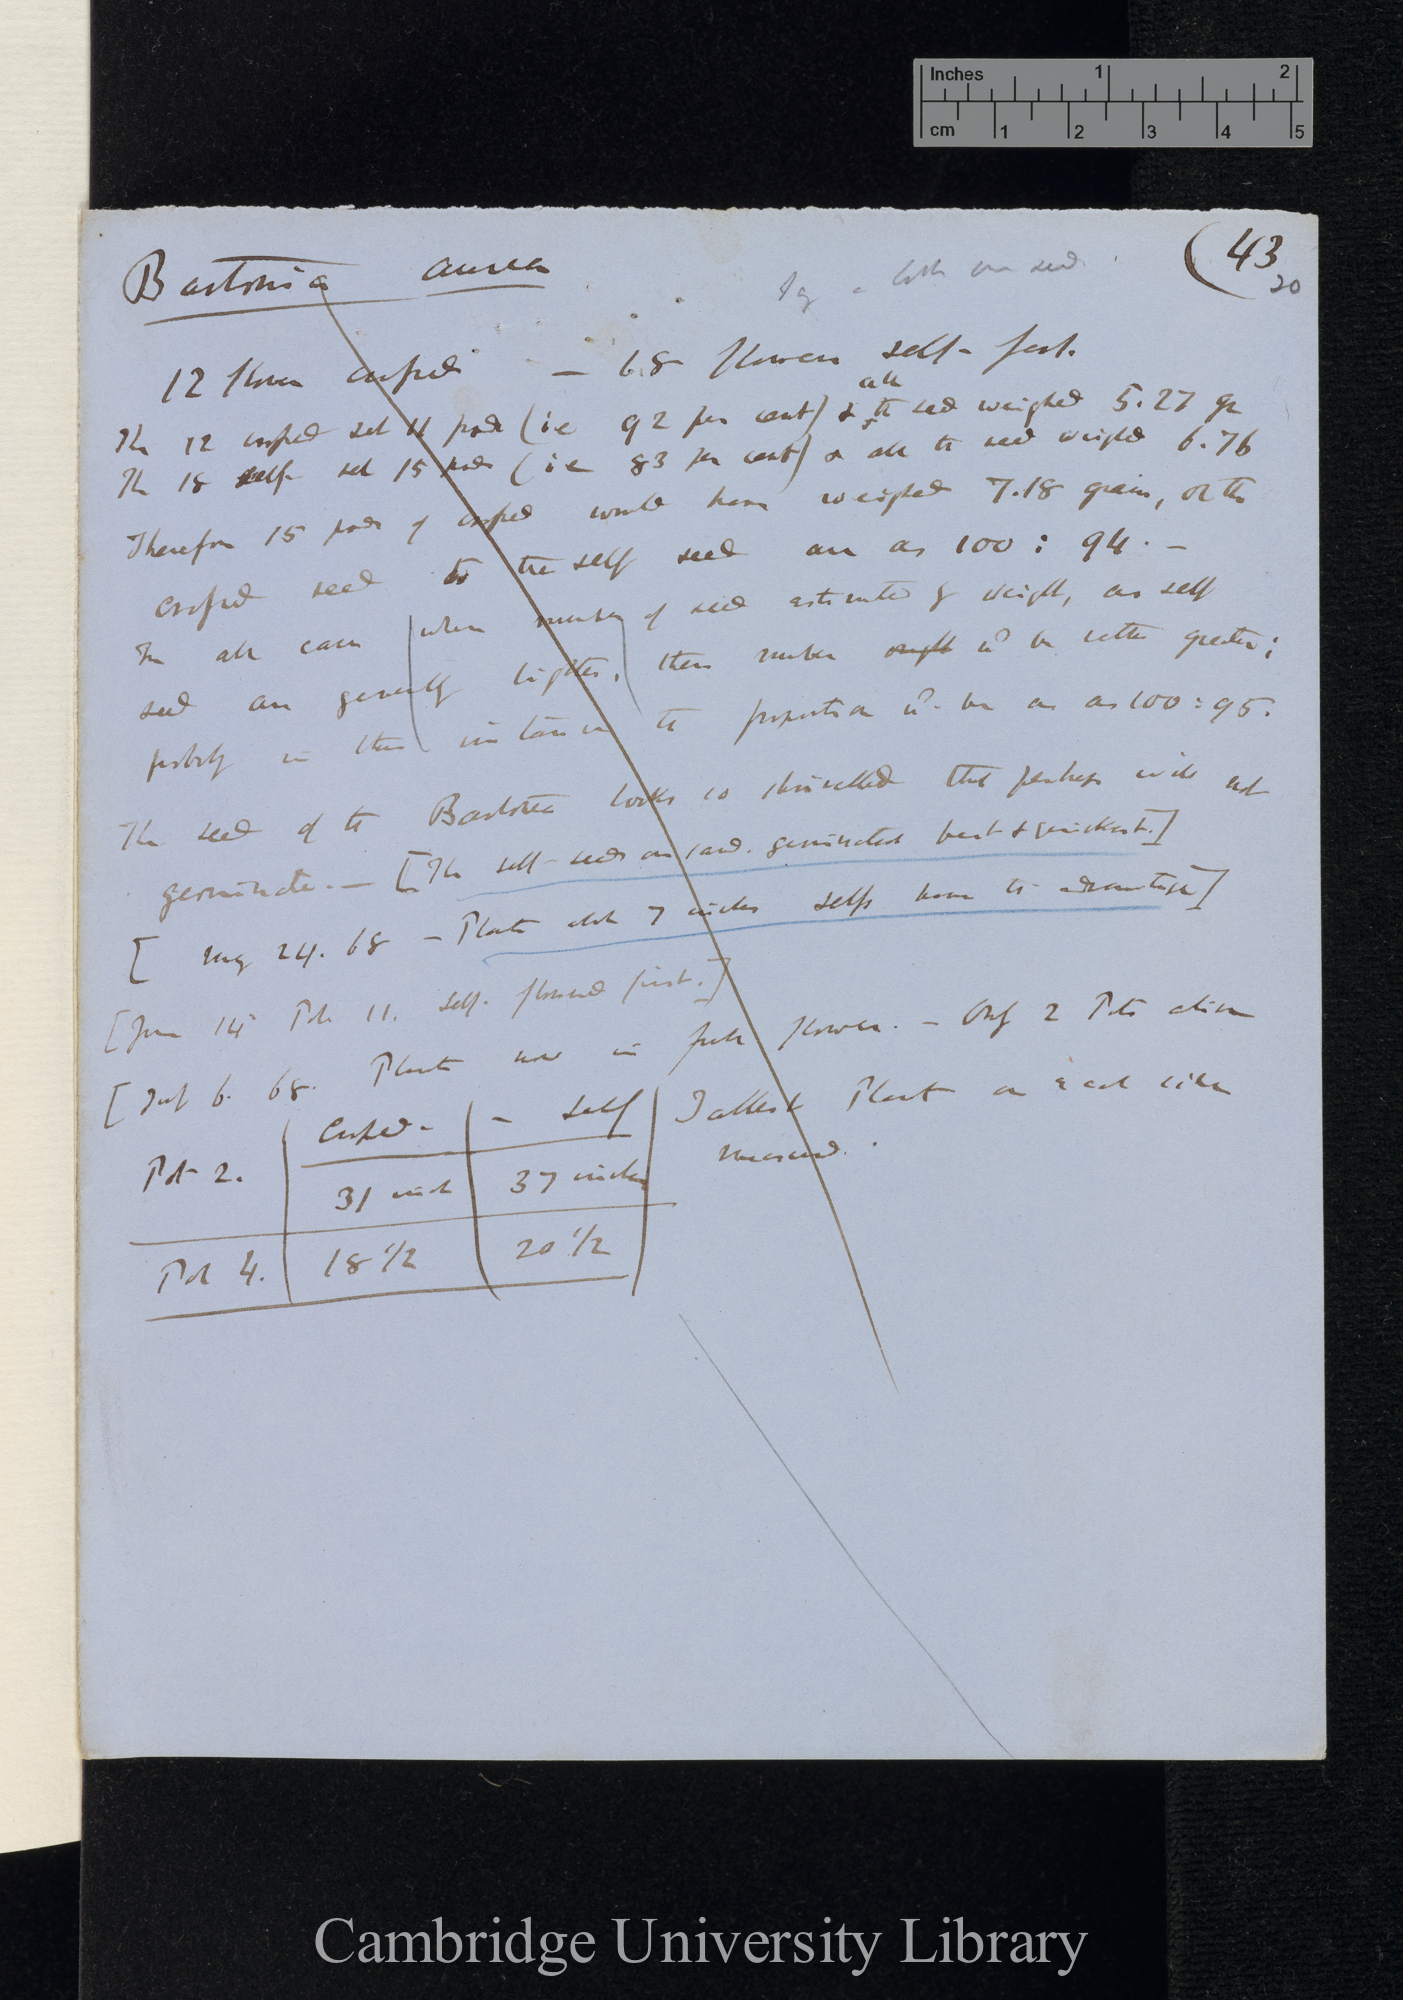 Inches 1 2
cm 1 2 3 4 5
(43
20
Bartonia aurea
12 flowers crossed — 68 flowers self-fert.
all
The 12 crossed set 11 pods (ie 92 per cent) & the seed weighed 5.27 gr
The 18 self- set 15 pods (ie 83 per cent) & all the seed weighed 6.76
Therefore 15 pods of crossed would have weighed 7.18 grains, or the
crossed seed to the self seed are as 100 : 94. —
In all cases when number of seed estimated by weight, as self
seed are generally lighter, their number wd be rather greater;
probably in this instance the proportion wd. be as as 100 : 95.
The seed of the Bartonia looks so shrivelled that perhaps will not
germinate. — [The self-seeds on sand. germinated best & quickest.]
[ May 24. 68 — Plants abt 7 inches selfs have the advantage]
[June 14 Pot 11. Self. flowered first.]
[July 6. 68. Plants now in full flower. — Only 2 Pots alive
Crossed — — Self Tallest Plant on each side
measured.
Pot 2. 31 inch 37 inches
Pot 4. 18 1/2 20 1/2
Cambridge University Library